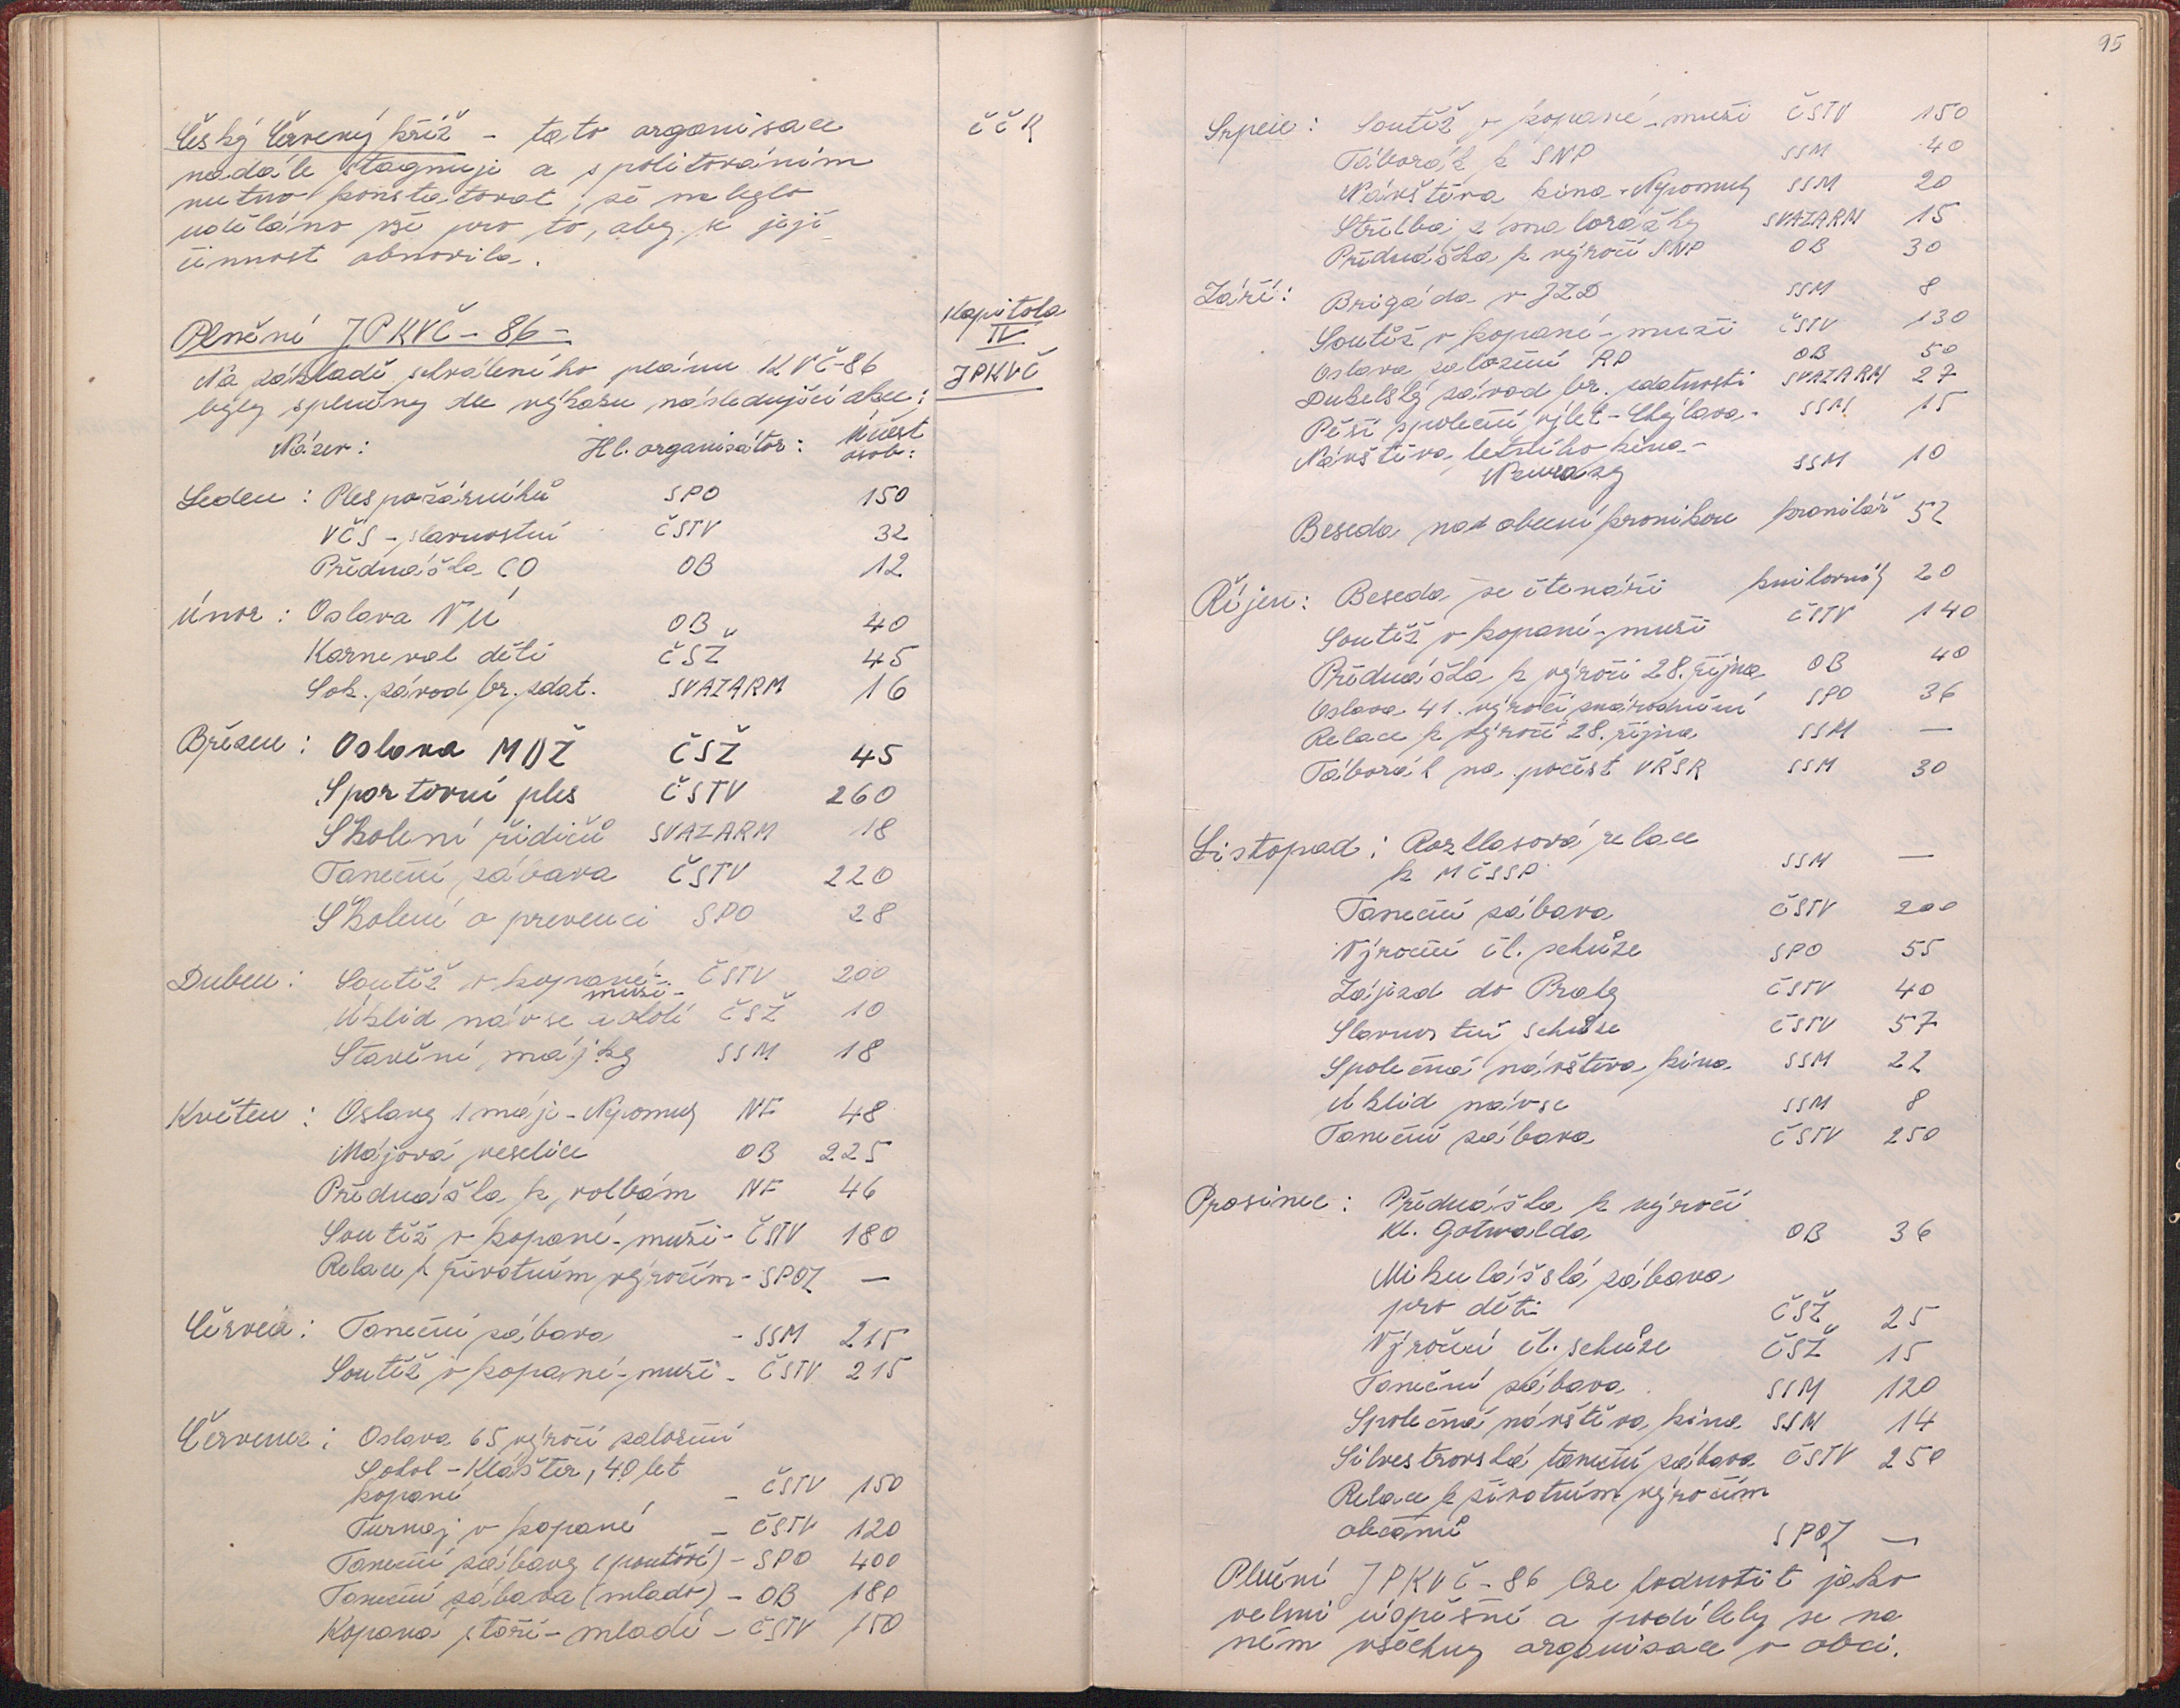 Český Červený kříž - tato organisace
nadále stagnuje a s politováním
nutno konstatovat, že nebylo
uděláno vše pro to, aby se její
činnost obnovila.
ČČK
Plnění JPKVČ - 86 -
Kapitola
IV
JPKVČ
Na základě schváleného plánu KVČ-86
byly splněny dle výkazu následující akce:
Název: Hl. organisátor: Účast
osob:
Leden: Ples požárníků SPO 150
VČS - slavnostní ČSTV 32
Přednáška CO OB 12
Únor: Oslava VÚ OB 40
Karneval dětí ČSŽ 45
Sok. závod br. zdat. SVAZARM 16
Březen: Oslava MDŽ ČSŽ 45
Sportovní ples ČSTV 260
Školení řidičů SVAZARM 18
Taneční zábava ČSTV 220
Školení o prevenci SPO 28
Duben: Soutěž v kopané - ČSTV 200
muži -
Úklid návse a okolí ČSŽ 10
Stavění májky SSM 18
Květen: Oslavy 1 máje - Nepomuk NF 48
Májová veselice OB 225
Přednáška k volbám NF 46
Soutěž v kopané - muži - ČSTV 180
Relace k životním výročím - SPOZ —
Červen: Taneční zábava - SSM 215
Soutěž v kopané - muži - ČSTV 215
Červenec: Oslava 65 výročí založení
Sokol - Klášter, 40 let
kopané - ČSTV 150
Turnaj v kopané - ČSTV 120
Taneční zábavy (pouťové) - SPO 400
Taneční zábava (mlado) - OB 180
Kopaná staří - mladí - ČSTV 150
95
Srpen: Soutěž v kopané - muži ČSTV 150
Táborák k SNP SSM 40
Návštěva kina - Nepomuk SSM 20
Střelba z malorážky SVAZARM 15
Přednáška k výročí SNP OB 30
Září: Brigáda v JZD SSM 8
Soutěž v kopané - muži ČSTV 130
Oslava založení RD OB 50
Dukelský závod br. zdatnosti SVAZARM 27
Pěší společný výlet - Chejlava - SSM 15
Návštěva letního kina -
Nzurazy SSM 10
Beseda nad obecní kronikou kronikář 52
Říjen: Beseda se čtenáři knihovník 20
Soutěž v kopané - muži ČSTV 140
Přednáška k výročí 28. října OB 40
Oslava 41. výročí znárodnění SPO 36
Relace k výročí 28. října SSM —
Táborák na počest VŘSR SSM 30
Listopad: Rozhlasová relace
k MČSSP SSM —
Taneční zábava ČSTV 200
Výroční čl. schůze SPO 55
Zájezd do Prahy ČSTV 40
Slavnostní schůze ČSTV 57
Společná návštěva kina SSM 22
Úklid návse SSM 8
Taneční zábava ČSTV 250
Prosinec: Přednáška k výročí
Kl. Gotwalda OB 36
Mikulášská zábava
pro děti ČSŽ 25
Výroční čl. schůze ČSŽ 15
Taneční zábava SSM 120
Společná návštěva kina SSM 14
Silvestrovská taneční zábava ČSTV 250
Relace k životním výročím
občanů SPOZ —
Plnění JPKVČ - 86 lze hodnotit jako
velmi úspěšné a podílely se na
něm všechny organisace v obci.